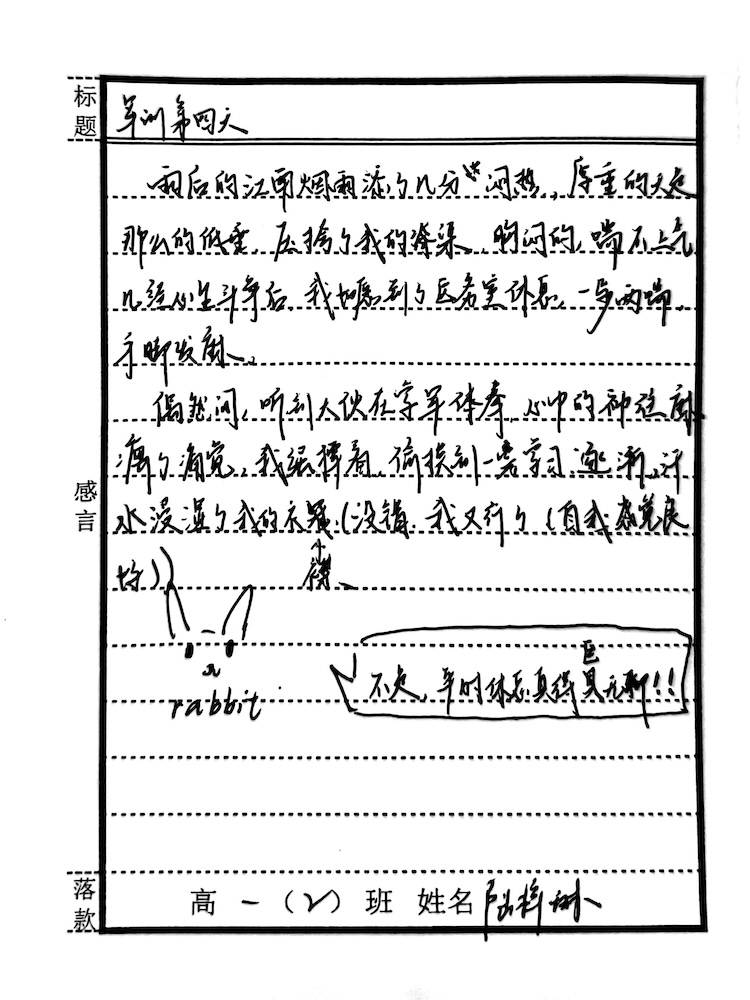 标题
军训第四天
雨后的江南烟雨添了几分闷热,厚重的天是
那么的低垂,压垮了我的脊梁,胸闷的,喘不上气
几经心里斗争后,我如愿到了医务室休息,一步两喘,
手脚发麻。
偶然间,听到大伙在学军体拳,心中的神经麻
痹了痛觉,我强撑着,偷摸到一旁学习,逐渐,汗
水浸湿了我的衣(没错,我又行了(自我感觉良
好))
襟、
感言
rabbit
不是,军时休息真得巨无聊!!!
落款
高一(2)班 姓名